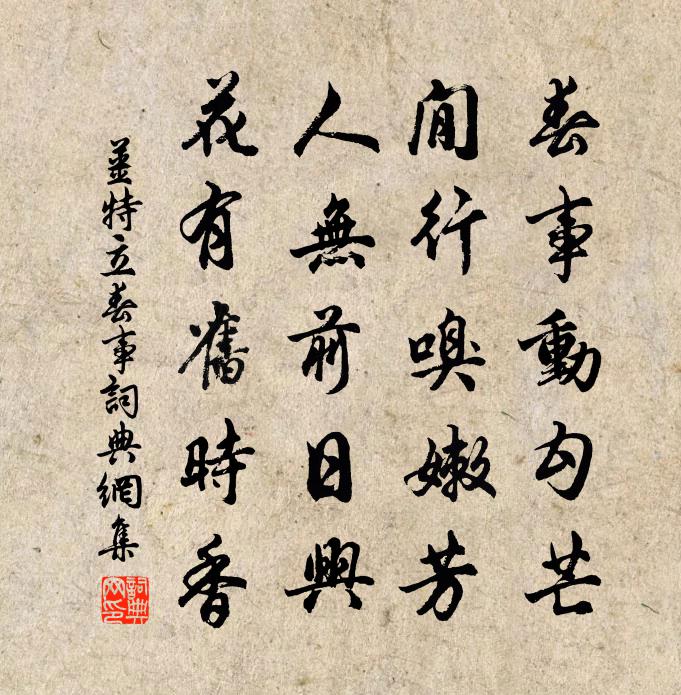 春事動勾芒
閒行嗅嫩芳
人無前日興
花有舊時香
姜特立春事詞典網集
詞典網印